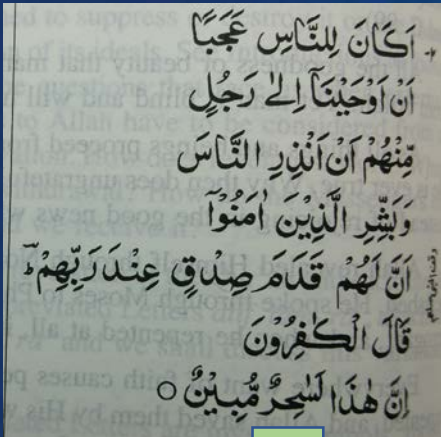 أَكَانَ لِلنَّاسِ عَجَبًا
أَنْ أَوْحَيْنَآ إِلٰى رَجُلٍ
مِّنْهُمْ أَنْ أَنْذِرِ النَّاسَ
وَبَشِّرِ الَّذِينَ اٰمَنُوٓا
أَنَّ لَهُمْ قَدَمَ صِدْقٍ عِنْدَ رَبِّهِمْ ؕ
قَالَ الْكٰفِرُونَ
إِنَّ هٰذَا لَسٰحِرٌ مُّبِيْنٌ ○